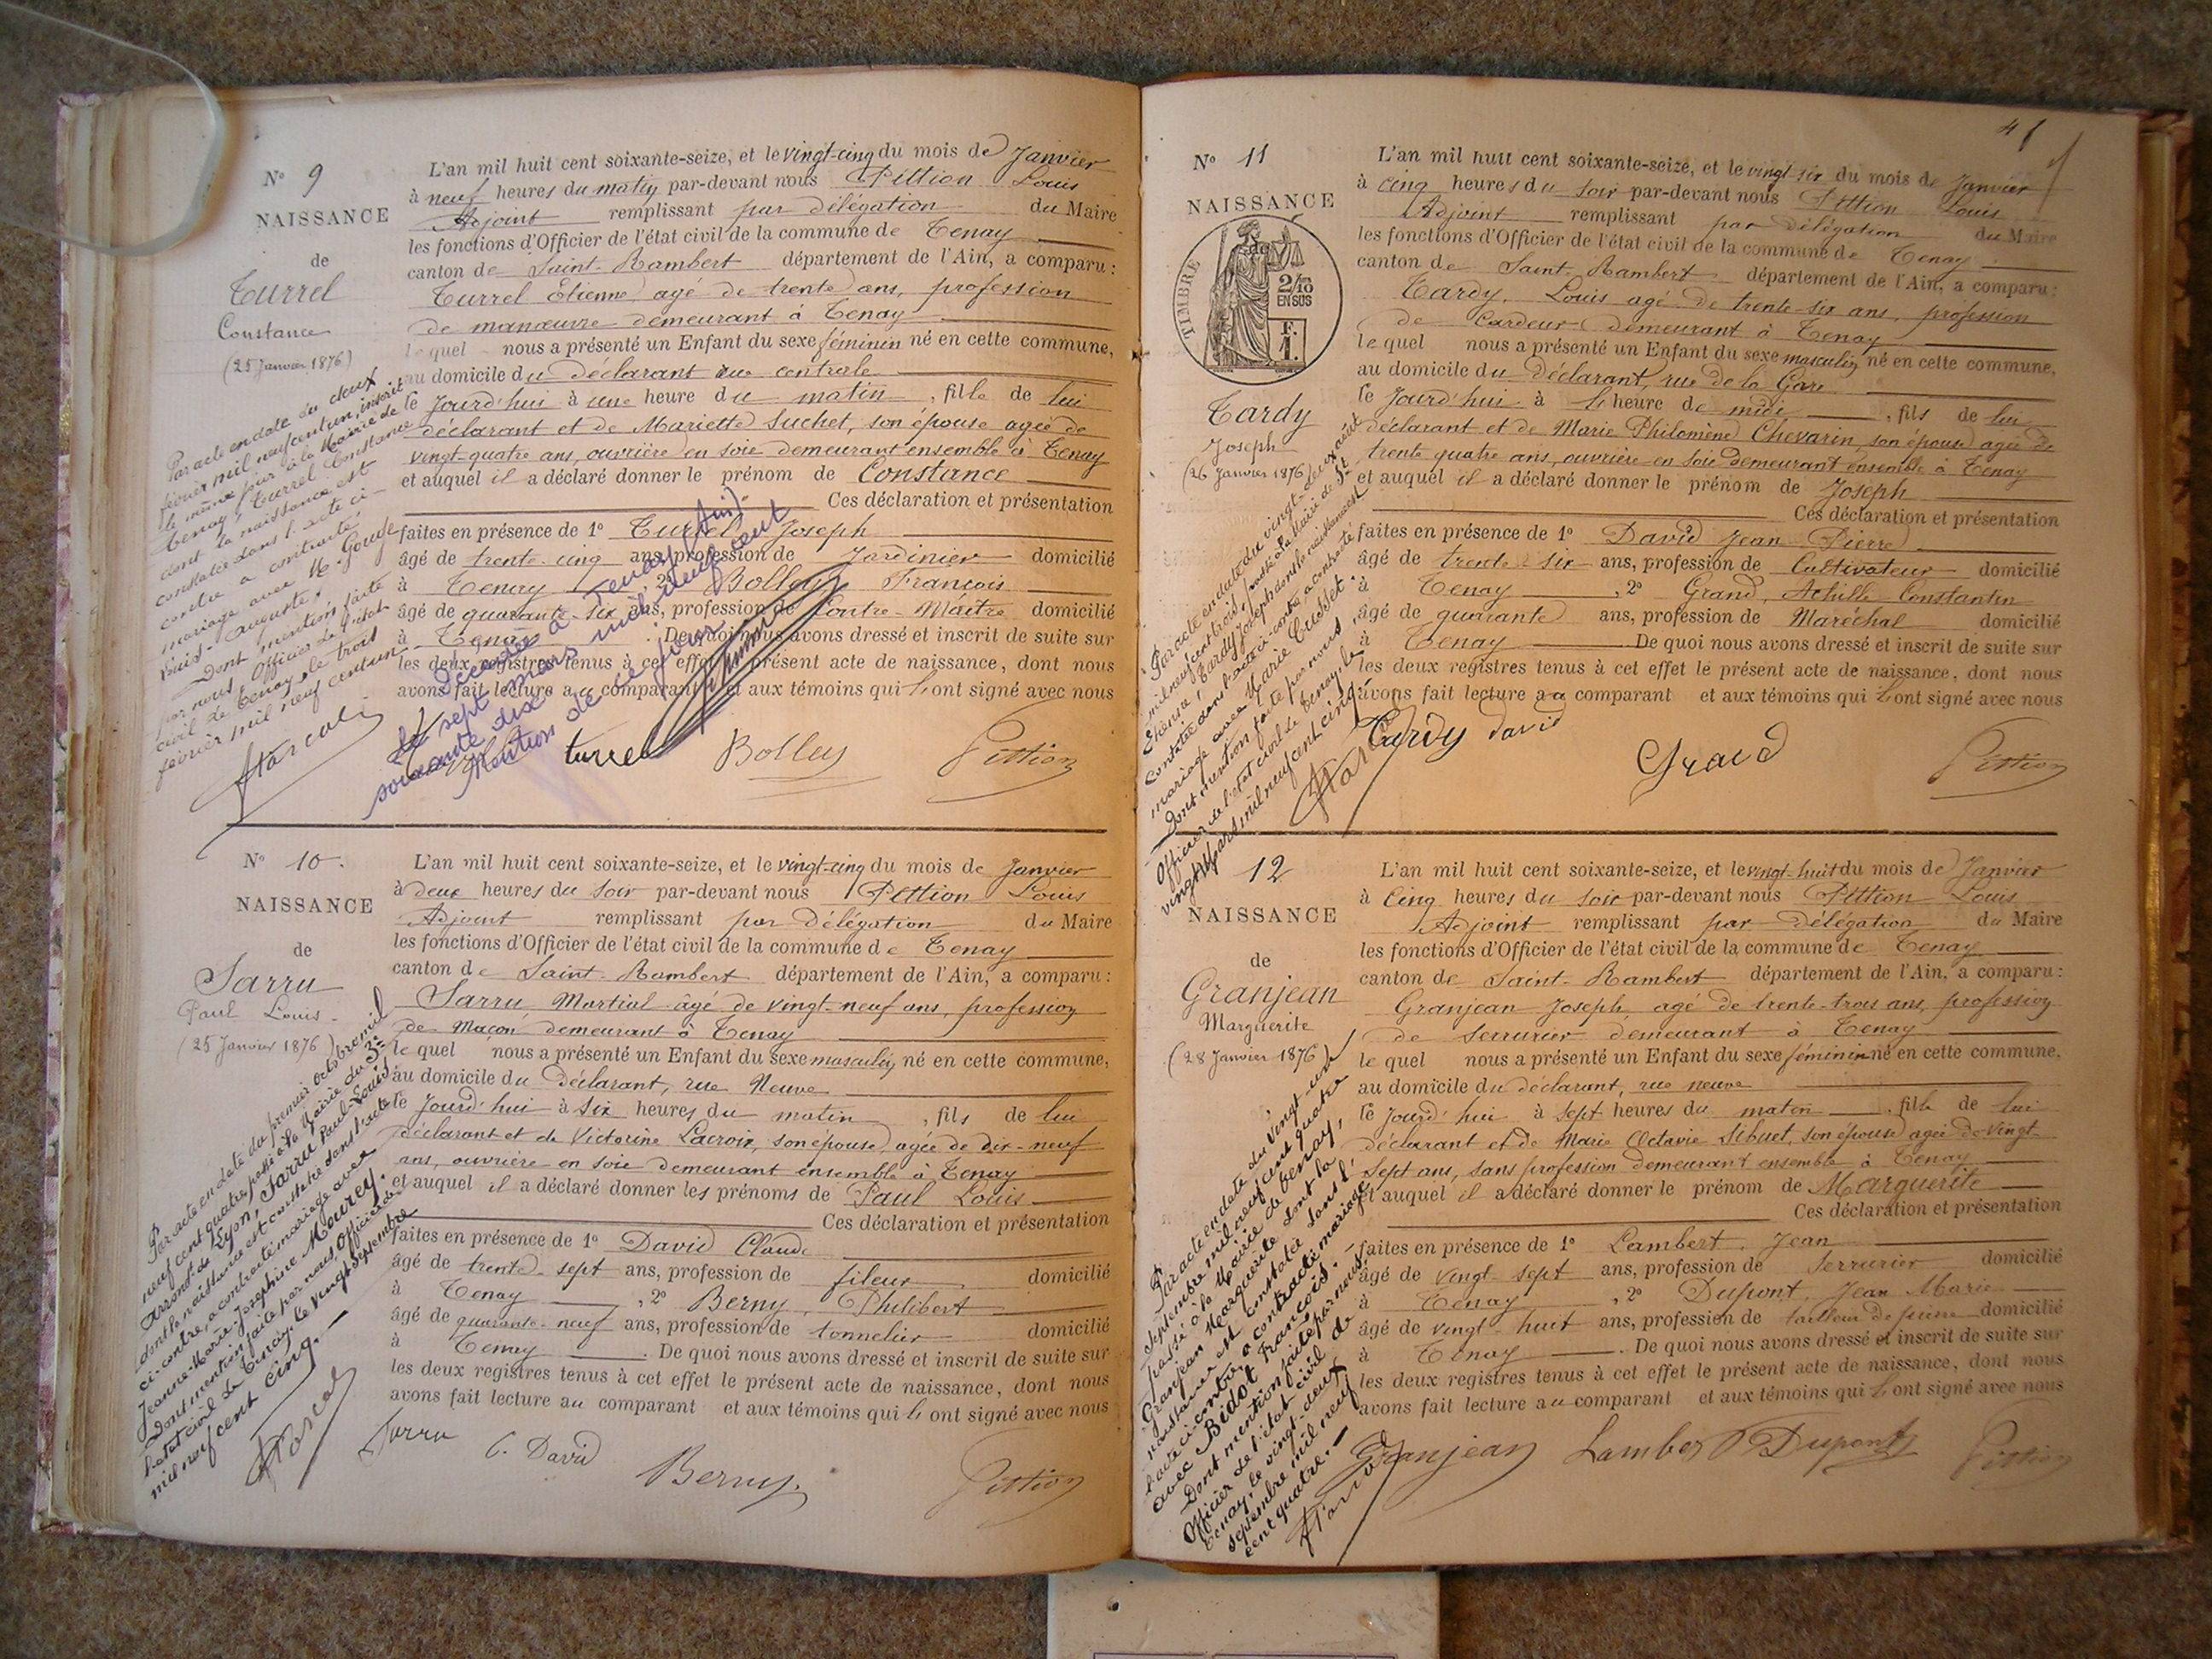 N° 9
NAISSANCE
de
Turrel
Constance
(25 Janvier 1876)
Par acte en date du deux
février mil neuf cent un, inscrit
le même jour à la Mairie de
Tenay, Turrel Constance
dont la naissance est
constatée dans l'acte ci-
contre a contracté
mariage avec M. Gouge
Louis-Auguste.
Dont mention faite
par nous, Officier de l'état
civil de Tenay le trois
février mil neuf cent un.
L'an mil huit cent soixante-seize, et le vingt-cinq du mois de Janvier
à neuf heures du matin par-devant nous Pittion Louis
Adjoint remplissant par délégation du Maire
les fonctions d'Officier de l'état civil de la commune de Tenay
canton de Saint-Rambert département de l'Ain, a comparu:
Turrel Etienne, agé de trente ans, profession
de manœuvre demeurant à Tenay
lequel nous a présenté un Enfant du sexe féminin né en cette commune,
au domicile du déclarant rue centrale
le Jourd'hui à une heure du matin, fille de lui
déclarant et de Mariette Suchet, son épouse agée de
vingt-quatre ans, ouvrière en soie demeurant ensemble à Tenay
et auquel il a déclaré donner le prénom de Constance
Ces déclaration et présentation
faites en présence de 1° Turrel Joseph
âgé de trente-cinq ans, profession de Jardinier domicilié
à Tenay, 2° Bolley François
âgé de quarante-six ans, profession de Contre-Maître domicilié
à Tenay. De quoi nous avons dressé et inscrit de suite sur
les deux registres tenus à cet effet le présent acte de naissance, dont nous
avons fait lecture au comparant et aux témoins qui ont signé avec nous
Décédée à Tenay (Ain)
le sept mars mil neuf cent
soixante dix
Mention de ce jour
turrel Bolley Pittion
N° 10.
NAISSANCE
de
Sarru
Paul Louis
(25 Janvier 1876)
Par acte en date du premier octobre mil
neuf cent quatre passé à la Mairie du 3e
arrondt de Lyon, Sarru Paul-Louis
dont la naissance est constatée dans l'acte
ci-contre, a contracté mariage avec
Jeanne-Marie-Josephine Mourey.
Dont mention faite par nous Officier de
l'état civil de Tenay, le vingt septembre
mil neuf cent cinq.
L'an mil huit cent soixante-seize, et le vingt-cinq du mois de Janvier
à deux heures du soir par-devant nous Pittion Louis
Adjoint remplissant par délégation du Maire
les fonctions d'Officier de l'état civil de la commune de Tenay
canton de Saint-Rambert département de l'Ain, a comparu:
Sarru Martial âgé de vingt-neuf ans, profession
de Maçon demeurant à Tenay
lequel nous a présenté un Enfant du sexe masculin né en cette commune,
au domicile du déclarant, rue Neuve
le Jourd'hui à six heures du matin, fils de lui
déclarant et de Victorine Lacroix, son épouse, agée de dix-neuf
ans, ouvrière en soie demeurant ensemble à Tenay
et auquel il a déclaré donner les prénoms de Paul Louis
Ces déclaration et présentation
faites en présence de 1° David Claude
âgé de trente-sept ans, profession de fileur domicilié
à Tenay, 2° Berny, Philibert
âgé de quarante-neuf ans, profession de tonnelier domicilié
à Tenay. De quoi nous avons dressé et inscrit de suite sur
les deux registres tenus à cet effet le présent acte de naissance, dont nous
avons fait lecture au comparant et aux témoins qui ont signé avec nous
Sarru C. David Berny. Pittion
N° 11
NAISSANCE
de
TIMBRE
2/10
EN SUS
F.
1.
Tardy
Joseph
(26 Janvier 1876)
Par acte en date du vingt-deux août
mil neuf cent trois, passé à la Mairie de St
Etienne, Tardy Joseph dont la naissance est
constatée dans l'acte ci-contre a contracté
mariage avec Marie Crosset.
Dont mention faite par nous,
Officier de l'état civil de Tenay, le
vingt mars mil neuf cent cinq.
L'an mil huit cent soixante-seize, et le vingt-six du mois de Janvier
à cinq heures du soir par-devant nous Pittion Louis
Adjoint remplissant par délégation du Maire
les fonctions d'Officier de l'état civil de la commune de Tenay
canton de Saint-Rambert département de l'Ain, a comparu:
Tardy, Louis agé de trente-six ans, profession
de Cardeur demeurant à Tenay
lequel nous a présenté un Enfant du sexe masculin né en cette commune,
au domicile du Déclarant, rue de la Gare
le Jourd'hui à l'heure de midi, fils de lui
déclarant et de Marie Philomène Chevarin, son épouse agée de
trente quatre ans, ouvrière en soie demeurant ensemble à Tenay
et auquel il a déclaré donner le prénom de Joseph
Ces déclaration et présentation
faites en présence de 1° David Jean Pierre
âgé de trente-six ans, profession de Cultivateur domicilié
à Tenay, 2° Grand, Achille Constantin
âgé de quarante ans, profession de Maréchal domicilié
à Tenay De quoi nous avons dressé et inscrit de suite sur
les deux registres tenus à cet effet le présent acte de naissance, dont nous
avons fait lecture au comparant et aux témoins qui ont signé avec nous
Tardy David Grand Pittion
12
NAISSANCE
de
Granjean
Marguerite
(28 Janvier 1876)
Par acte en date du vingt-un
septembre mil neuf cent quatre
passé à la Mairie de Tenay,
Granjean Marguerite dont la
naissance est constatée dans l'
acte ci-contre, a contracté mariage
avec Bidot François.
Dont mention faite par nous,
Officier de l'état civil de
Tenay, le vingt-deux
septembre mil neuf
cent quatre.
L'an mil huit cent soixante-seize, et le vingt-huit du mois de Janvier
à Cinq heures du soir par-devant nous Pittion Louis
Adjoint remplissant par délégation du Maire
les fonctions d'Officier de l'état civil de la commune de Tenay
canton de Saint-Rambert département de l'Ain, a comparu:
Granjean Joseph, agé de trente-trois ans, profession
de Serrurier demeurant à Tenay
lequel nous a présenté un Enfant du sexe féminin né en cette commune,
au domicile du déclarant, rue neuve
le Jourd'hui à sept heures du matin, fille de lui
déclarant et de Marie Octavie Sibuet, son épouse agée de vingt-
sept ans, sans profession demeurant ensemble à Tenay
et auquel il a déclaré donner le prénom de Marguerite
Ces déclaration et présentation
faites en présence de 1° Lambert, Jean
âgé de vingt-sept ans, profession de Serrurier domicilié
à Tenay, 2° Dupont, Jean Marie
âgé de vingt-huit ans, profession de tailleur de pierre domicilié
à Tenay. De quoi nous avons dressé et inscrit de suite sur
les deux registres tenus à cet effet le présent acte de naissance, dont nous
avons fait lecture au comparant et aux témoins qui ont signé avec nous
Granjean Lambert Dupont Pittion